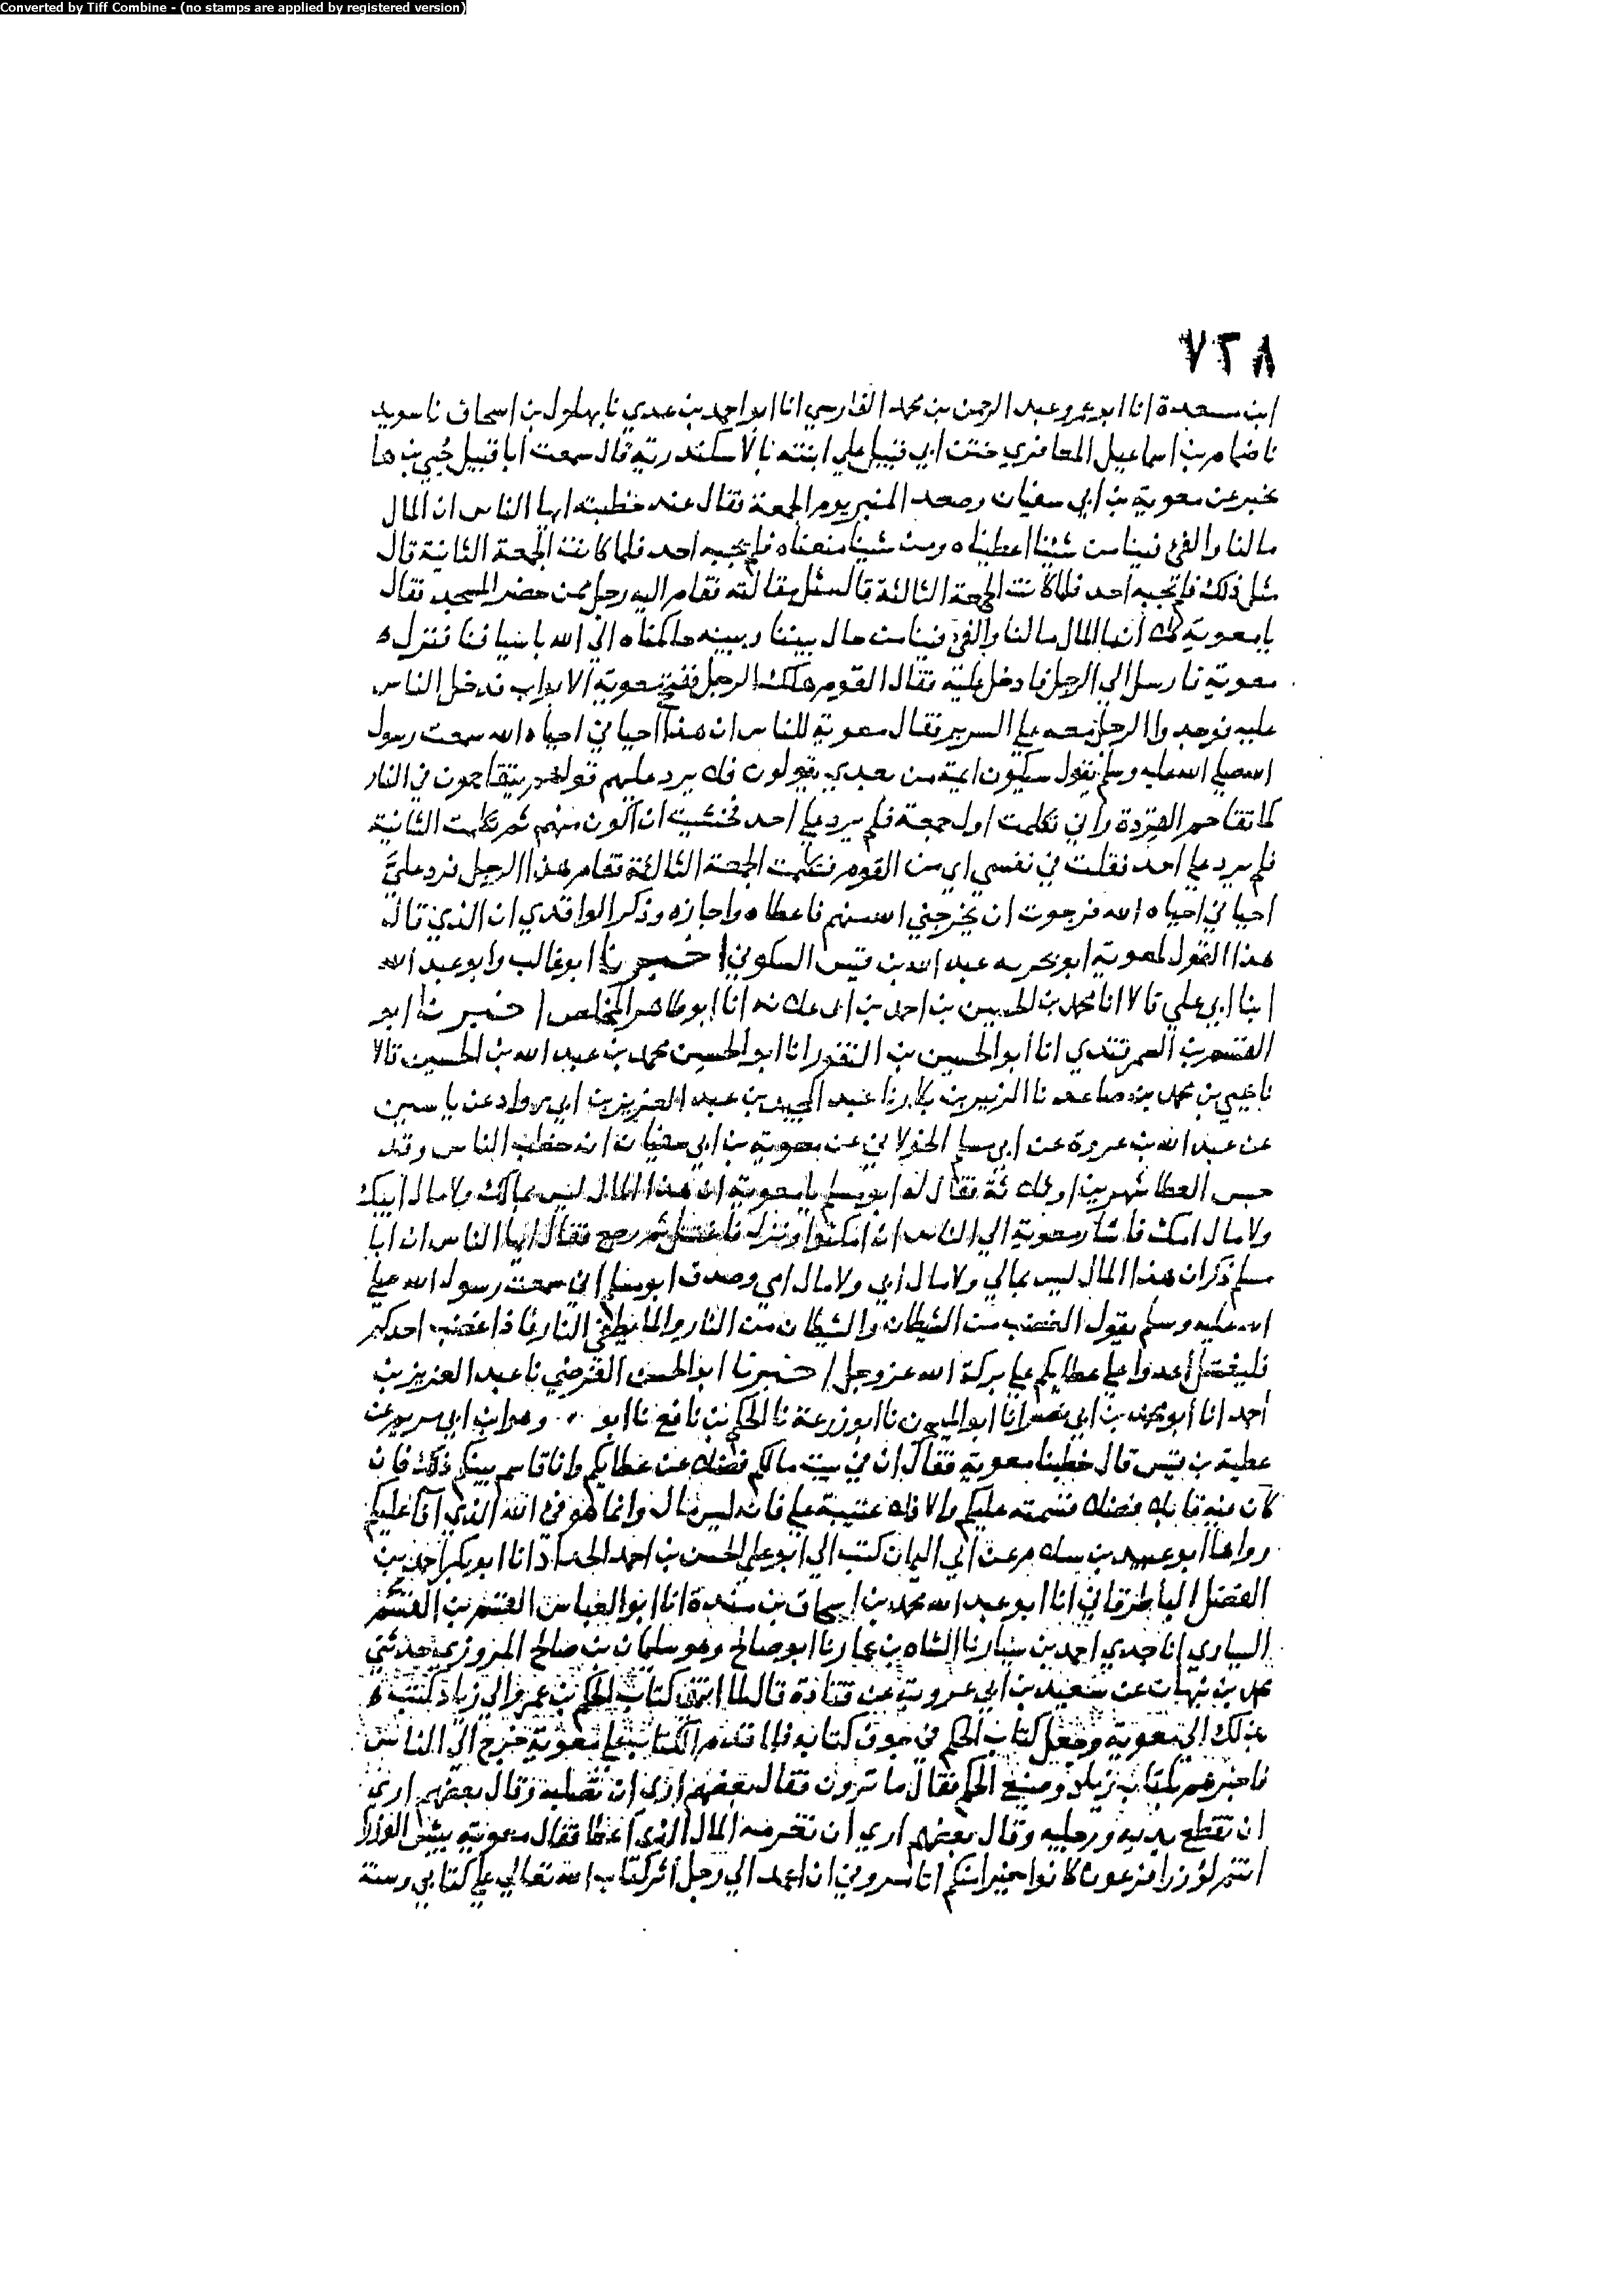 Converted by Tiff Combine - (no stamps are applied by registered version)
٧٢٨
ابن مسعدة انا ابو عمرو عبد الرحمن بن محمد الفارسي انا ابو احمد بن عدي نا بهلول بن اسحاق نا سويد
نا ضمام بن اسماعيل المعافري ختن ابي قبيل علي ابنته بالاسكندرية قال سمعت ابا قبيل حيي بن ها
يخبر عن معوية بن ابي سفيان وصعد المنبر يوم الجمعة فقال عند خطبته ايها الناس ان المال
مالنا والفئ فيئنا من شئنا اعطيناه ومن شئنا منعناه فلم يجبه احد فلما كانت الجمعة الثانية قال
مثل ذلك فلم يجبه احد فلما كانت الجمعة الثالثة قال مثل مقالته فقام اليه رجل ممن حضر المسجد فقال
يا معوية كلا انما المال مالنا والفئ فيئنا من حال بيننا وبينه حاكمناه الي الله باسيافنا فنزل
معوية فارسل الي الرجل فادخل عليه فقال القوم هلك الرجل ففتح معوية الابواب فدخل الناس
عليه فوجدوا الرجل معه علي السرير فقال معوية للناس ان هذا احياني احياه الله سمعت رسول
الله صلي الله عليه وسلم يقول سيكون ايمة من بعدي يقولون فلا يرد عليهم قولهم يتقاحمون في النار
كما تقاحم القردة واني تكلمت اول جمعة فلم يرد علي احد فخشيت ان اكون منهم ثم تكلمت الثانية
فلم يرد علي احد فقلت في نفسي اني من القوم فتكلمت الجمعة الثالثة فقام هذا الرجل فرد عليَّ
احياني احياه الله فرجوت ان يخرجني الله منهم فاعطاه واجازه وذكر الواقدي ان الذي قال
هذا القول لمعوية ابو بحريه عبد الله بن قيس السكوني اخبرنا ابو غالب وابو عبد الله
ابنا ابي علي قالا انا محمد بن الحسين بن احمد بن انا ابو طاهر المخلص اخبرنا ابو
القسم بن السمرقندي انا ابو الحسين بن النقور انا ابو الحسين محمد بن عبد الله بن الحسين قالا
نا يحيي بن محمد بن صاعد نا الزبير بن بكار نا عبد المجيد بن عبد العزيز بن ابي رواد عن ياسين
عن عبد الله بن عروة عن ابي مسلم الخولاني عن معوية بن ابي سفيان انه خطب الناس وقد
حبس العطا شهرين او ثلاثة فقال له ابو مسلم يا معوية ان هذا المال ليس بمالك ولا مال ابيك
ولا مال امك فاشار معوية الي الناس ان امكثوا ونزل فاغتسل ثم رجع فقال ايها الناس ان ابا
مسلم ذكر ان هذا المال ليس بمالي ولا مال ابي ولا مال امي وصدق ابو مسلم اني سمعت رسول الله صلي
الله عليه وسلم يقول الغضب من الشيطان والشيطان من النار والما يطفئ النار فاذا غضب احدكم
فليغتسل اغدوا علي عطايكم علي بركة الله عز وجل اخبرنا ابو الحسن الفرضي نا عبد العزيز بن
احمد انا ابو محمد بن ابي نصر انا ابو الميمون نا ابو زرعة نا الحكم بن نافع نا ابو .. وهو ابن ابي مريم عن
عطية بن قيس قال خطبنا معوية فقال ان في بيت مالكم فضلا عن عطايكم وانا قاسم بينكم ذلك فان
كان فيه قابلا فضلا قسمته عليكم والا فلا عتيبة علي فانه ليس بمال وانما هو فئ الله الذي افا عليكم
رواها ابو عبيد بن سلام عن ابي اليمان كتب الي ابو علي الحسن بن احمد الحداد انا ابو بكر احمد بن
الفضل الباطرقاني انا ابو عبد الله محمد بن اسحاق بن مندة انا ابو العباس القسم بن القسم
السياري انا جدي احمد بن سيار نا الشاه بن عمار نا ابو صالح وهو سليمان بن صالح المروزي حدثني
محمد بن نبهان عن سعيد بن ابي عروبة عن قتادة قال لما انتهى كتاب الحكم بن عمرو الي زياد كتب
بذلك الي معوية وجعل كتاب الحكم في جوف كتابه فلما قدم الكتاب علي معوية خرج الي الناس
فاخبرهم بكتاب زياد وصنيع الحكم فقال ما ترون فقال بعضهم اري ان تصلبه وقال بعضهم اري
ان تقطع يديه ورجليه وقال بعضهم اري ان تغرمه المال الذي اعطا فقال معوية بئس الوزرا
انتم لوزرا فرعون كانوا خيرا منكم اتامروني ان اعمد الي رجل اثر كتاب الله تعالي علي كتابي وسنة